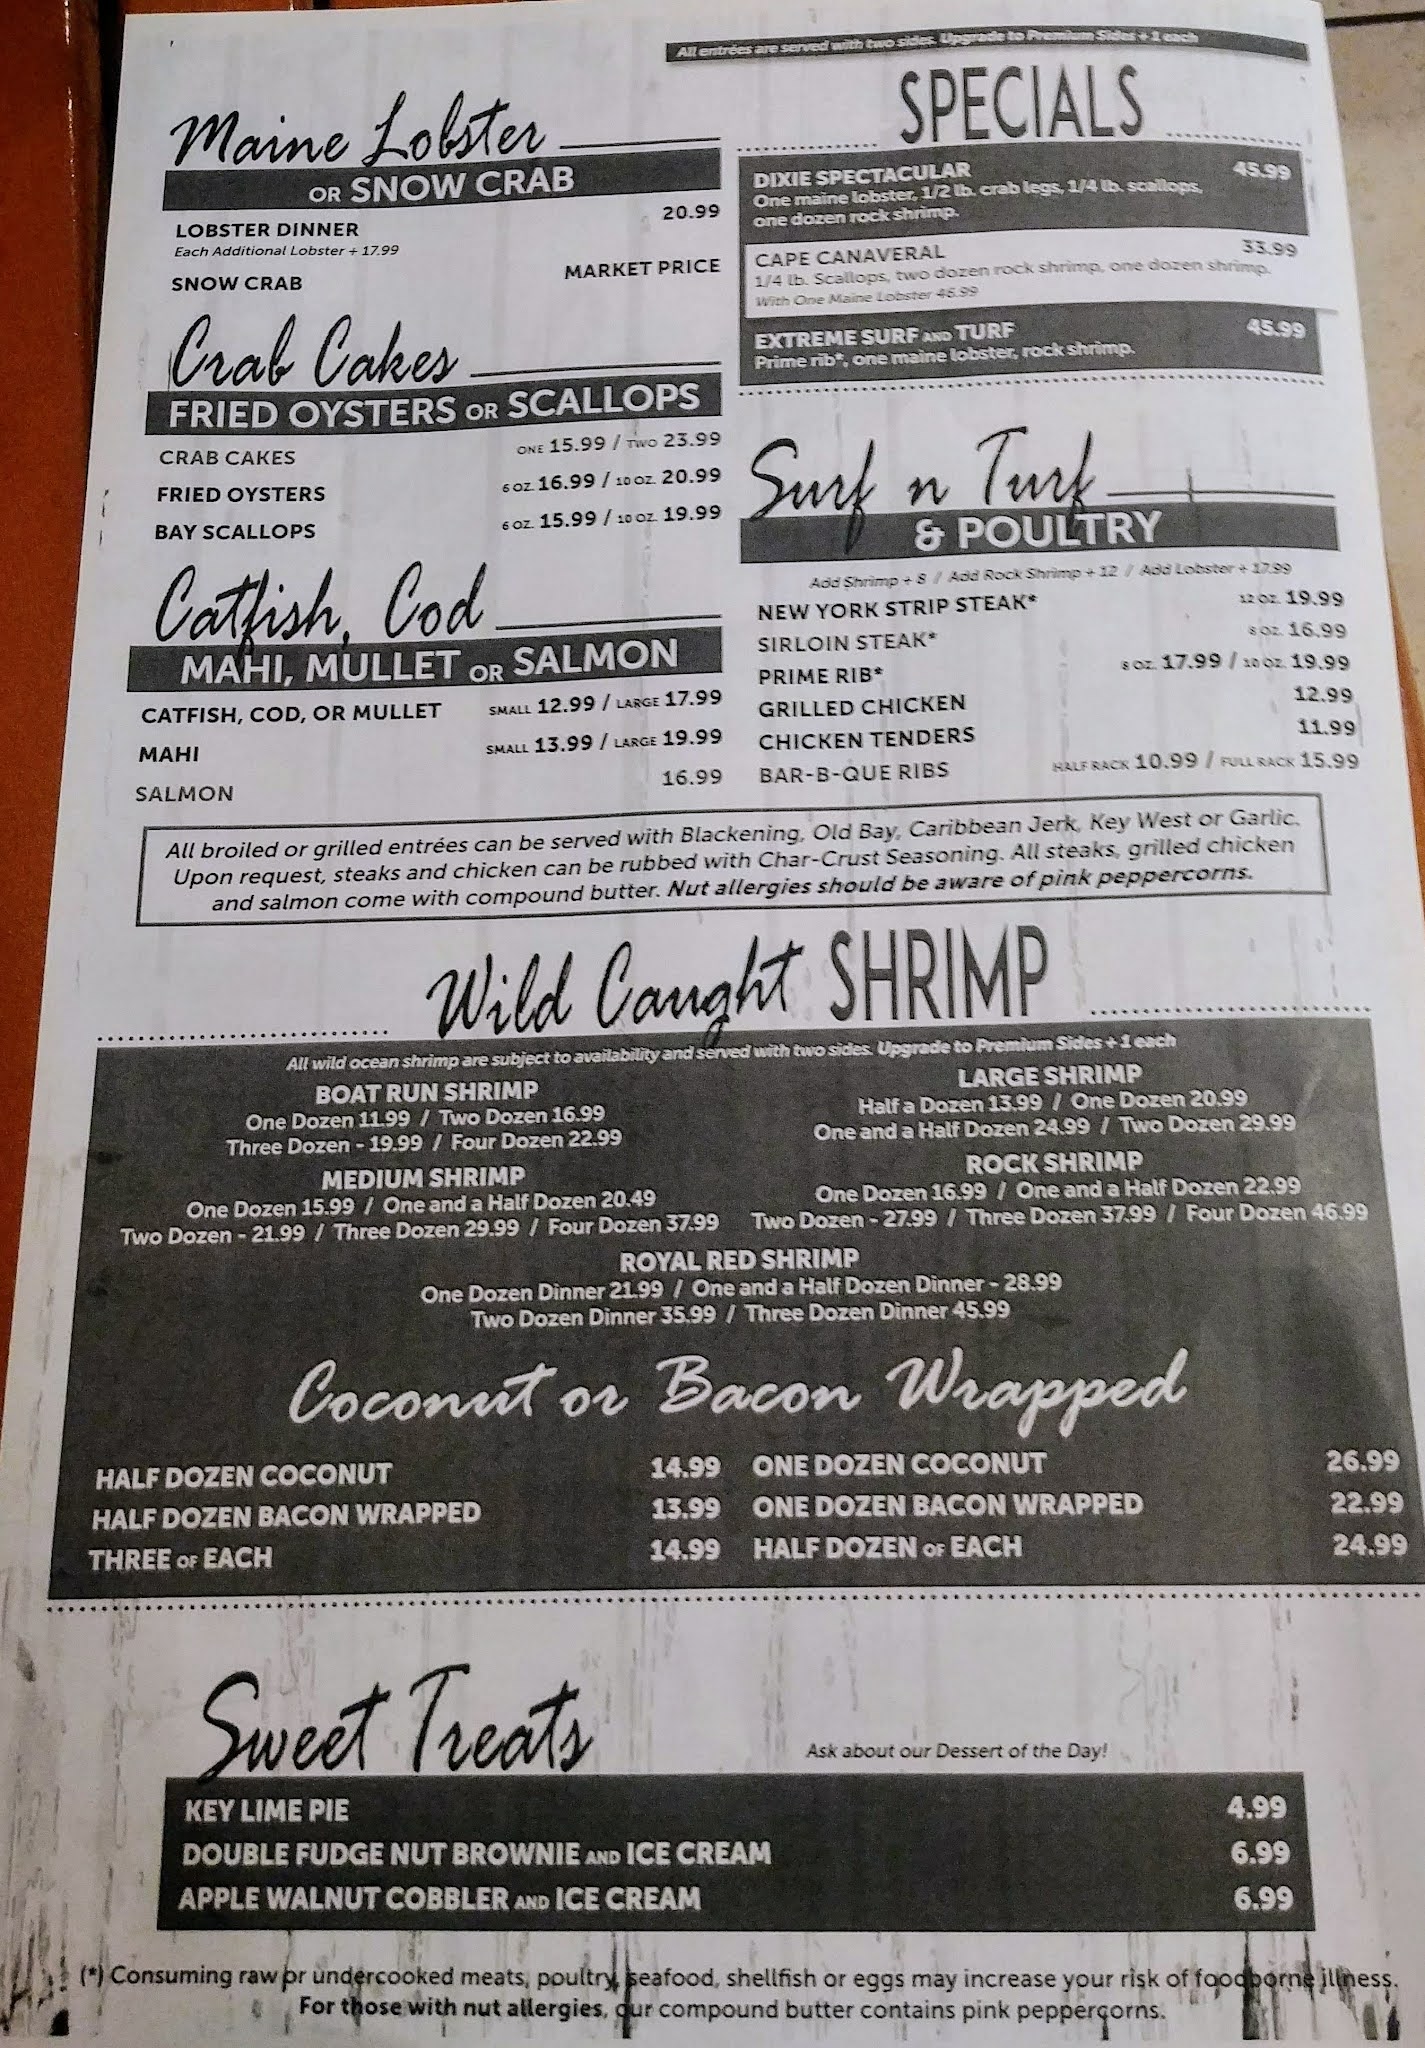 All entrées are served with two sides. Upgrade to Premium Sides + 1 each
Maine Lobster
OR SNOW CRAB
LOBSTER DINNER 20.99
Each Additional Lobster + 17.99
SNOW CRAB MARKET PRICE
Crab Cakes
FRIED OYSTERS OR SCALLOPS
CRAB CAKES ONE 15.99 / TWO 23.99
FRIED OYSTERS 6 OZ. 16.99 / 10 OZ. 20.99
BAY SCALLOPS 6 OZ. 15.99 / 10 OZ. 19.99
Catfish, Cod
MAHI, MULLET OR SALMON
CATFISH, COD, OR MULLET SMALL 12.99 / LARGE 17.99
MAHI SMALL 13.99 / LARGE 19.99
SALMON 16.99
SPECIALS
DIXIE SPECTACULAR 45.99
One maine lobster, 1/2 lb. crab legs, 1/4 lb. scallops,
one dozen rock shrimp.
CAPE CANAVERAL 33.99
1/4 lb. Scallops, two dozen rock shrimp, one dozen shrimp.
With One Maine Lobster 46.99
EXTREME SURF AND TURF 45.99
Prime rib*, one maine lobster, rock shrimp.
Surf n Turf
& POULTRY
Add Shrimp + 8 / Add Rock Shrimp + 12 / Add Lobster + 17.99
NEW YORK STRIP STEAK* 12 OZ. 19.99
SIRLOIN STEAK* 8 OZ. 16.99
PRIME RIB* 8 OZ. 17.99 / 10 OZ. 19.99
GRILLED CHICKEN 12.99
CHICKEN TENDERS 11.99
BAR-B-QUE RIBS HALF RACK 10.99 / FULL RACK 15.99
All broiled or grilled entrées can be served with Blackening, Old Bay, Caribbean Jerk, Key West or Garlic.
Upon request, steaks and chicken can be rubbed with Char-Crust Seasoning. All steaks, grilled chicken
and salmon come with compound butter. Nut allergies should be aware of pink peppercorns.
Wild Caught SHRIMP
All wild ocean shrimp are subject to availability and served with two sides. Upgrade to Premium Sides + 1 each
BOAT RUN SHRIMP
One Dozen 11.99 / Two Dozen 16.99
Three Dozen - 19.99 / Four Dozen 22.99
MEDIUM SHRIMP
One Dozen 15.99 / One and a Half Dozen 20.49
Two Dozen - 21.99 / Three Dozen 29.99 / Four Dozen 37.99
LARGE SHRIMP
Half a Dozen 13.99 / One Dozen 20.99
One and a Half Dozen 24.99 / Two Dozen 29.99
ROCK SHRIMP
One Dozen 16.99 / One and a Half Dozen 22.99
Two Dozen - 27.99 / Three Dozen 37.99 / Four Dozen 46.99
ROYAL RED SHRIMP
One Dozen Dinner 21.99 / One and a Half Dozen Dinner - 28.99
Two Dozen Dinner 35.99 / Three Dozen Dinner 45.99
Coconut or Bacon Wrapped
HALF DOZEN COCONUT 14.99
HALF DOZEN BACON WRAPPED 13.99
THREE OF EACH 14.99
ONE DOZEN COCONUT 26.99
ONE DOZEN BACON WRAPPED 22.99
HALF DOZEN OF EACH 24.99
Sweet Treats
Ask about our Dessert of the Day!
KEY LIME PIE 4.99
DOUBLE FUDGE NUT BROWNIE AND ICE CREAM 6.99
APPLE WALNUT COBBLER AND ICE CREAM 6.99
(*) Consuming raw or undercooked meats, poultry, seafood, shellfish or eggs may increase your risk of foodborne illness.
For those with nut allergies, our compound butter contains pink peppercorns.